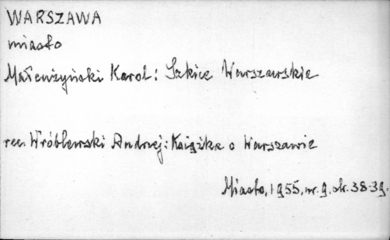 WARSZAWA
miasto
Małcużyński Karol: Szkice Warszawskie
rec. Wróblewski Andrzej: Książka o Warszawie
Miasto, 1955, nr. 9. str. 38-39.